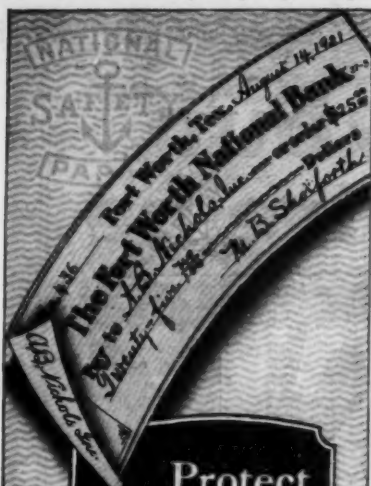 NATIONAL
SAFETY
PAPER
Fort Worth, Tex, August 14, 1921
The Fort Worth National Bank
Pay to A.B. Nichols, Inc. or order $25.00
Twenty-five Dollars
A.B. Nichols Inc.
Protect